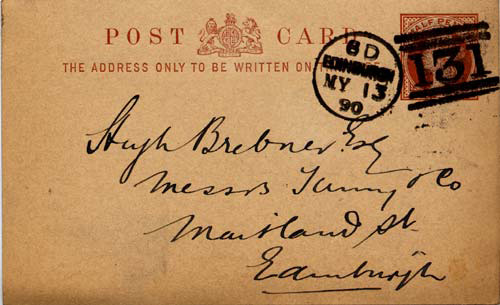 POST CARD
THE ADDRESS ONLY TO BE WRITTEN ON
HALF PE
6D
EDINBURGH
MY 13
90
131
Hugh Brebner Esq
Messrs Tunny & Co
Maitland St
Edinburgh